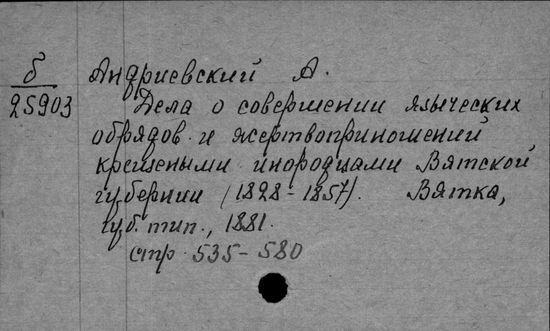 б
25903
Андриевский А.
Дела о совершении языческих
обрядов и жертвоприношений
крещеными инородцами Вятской
губернии (1828-1857). Вятка,
губ. тип., 1881.
стр. 535-580